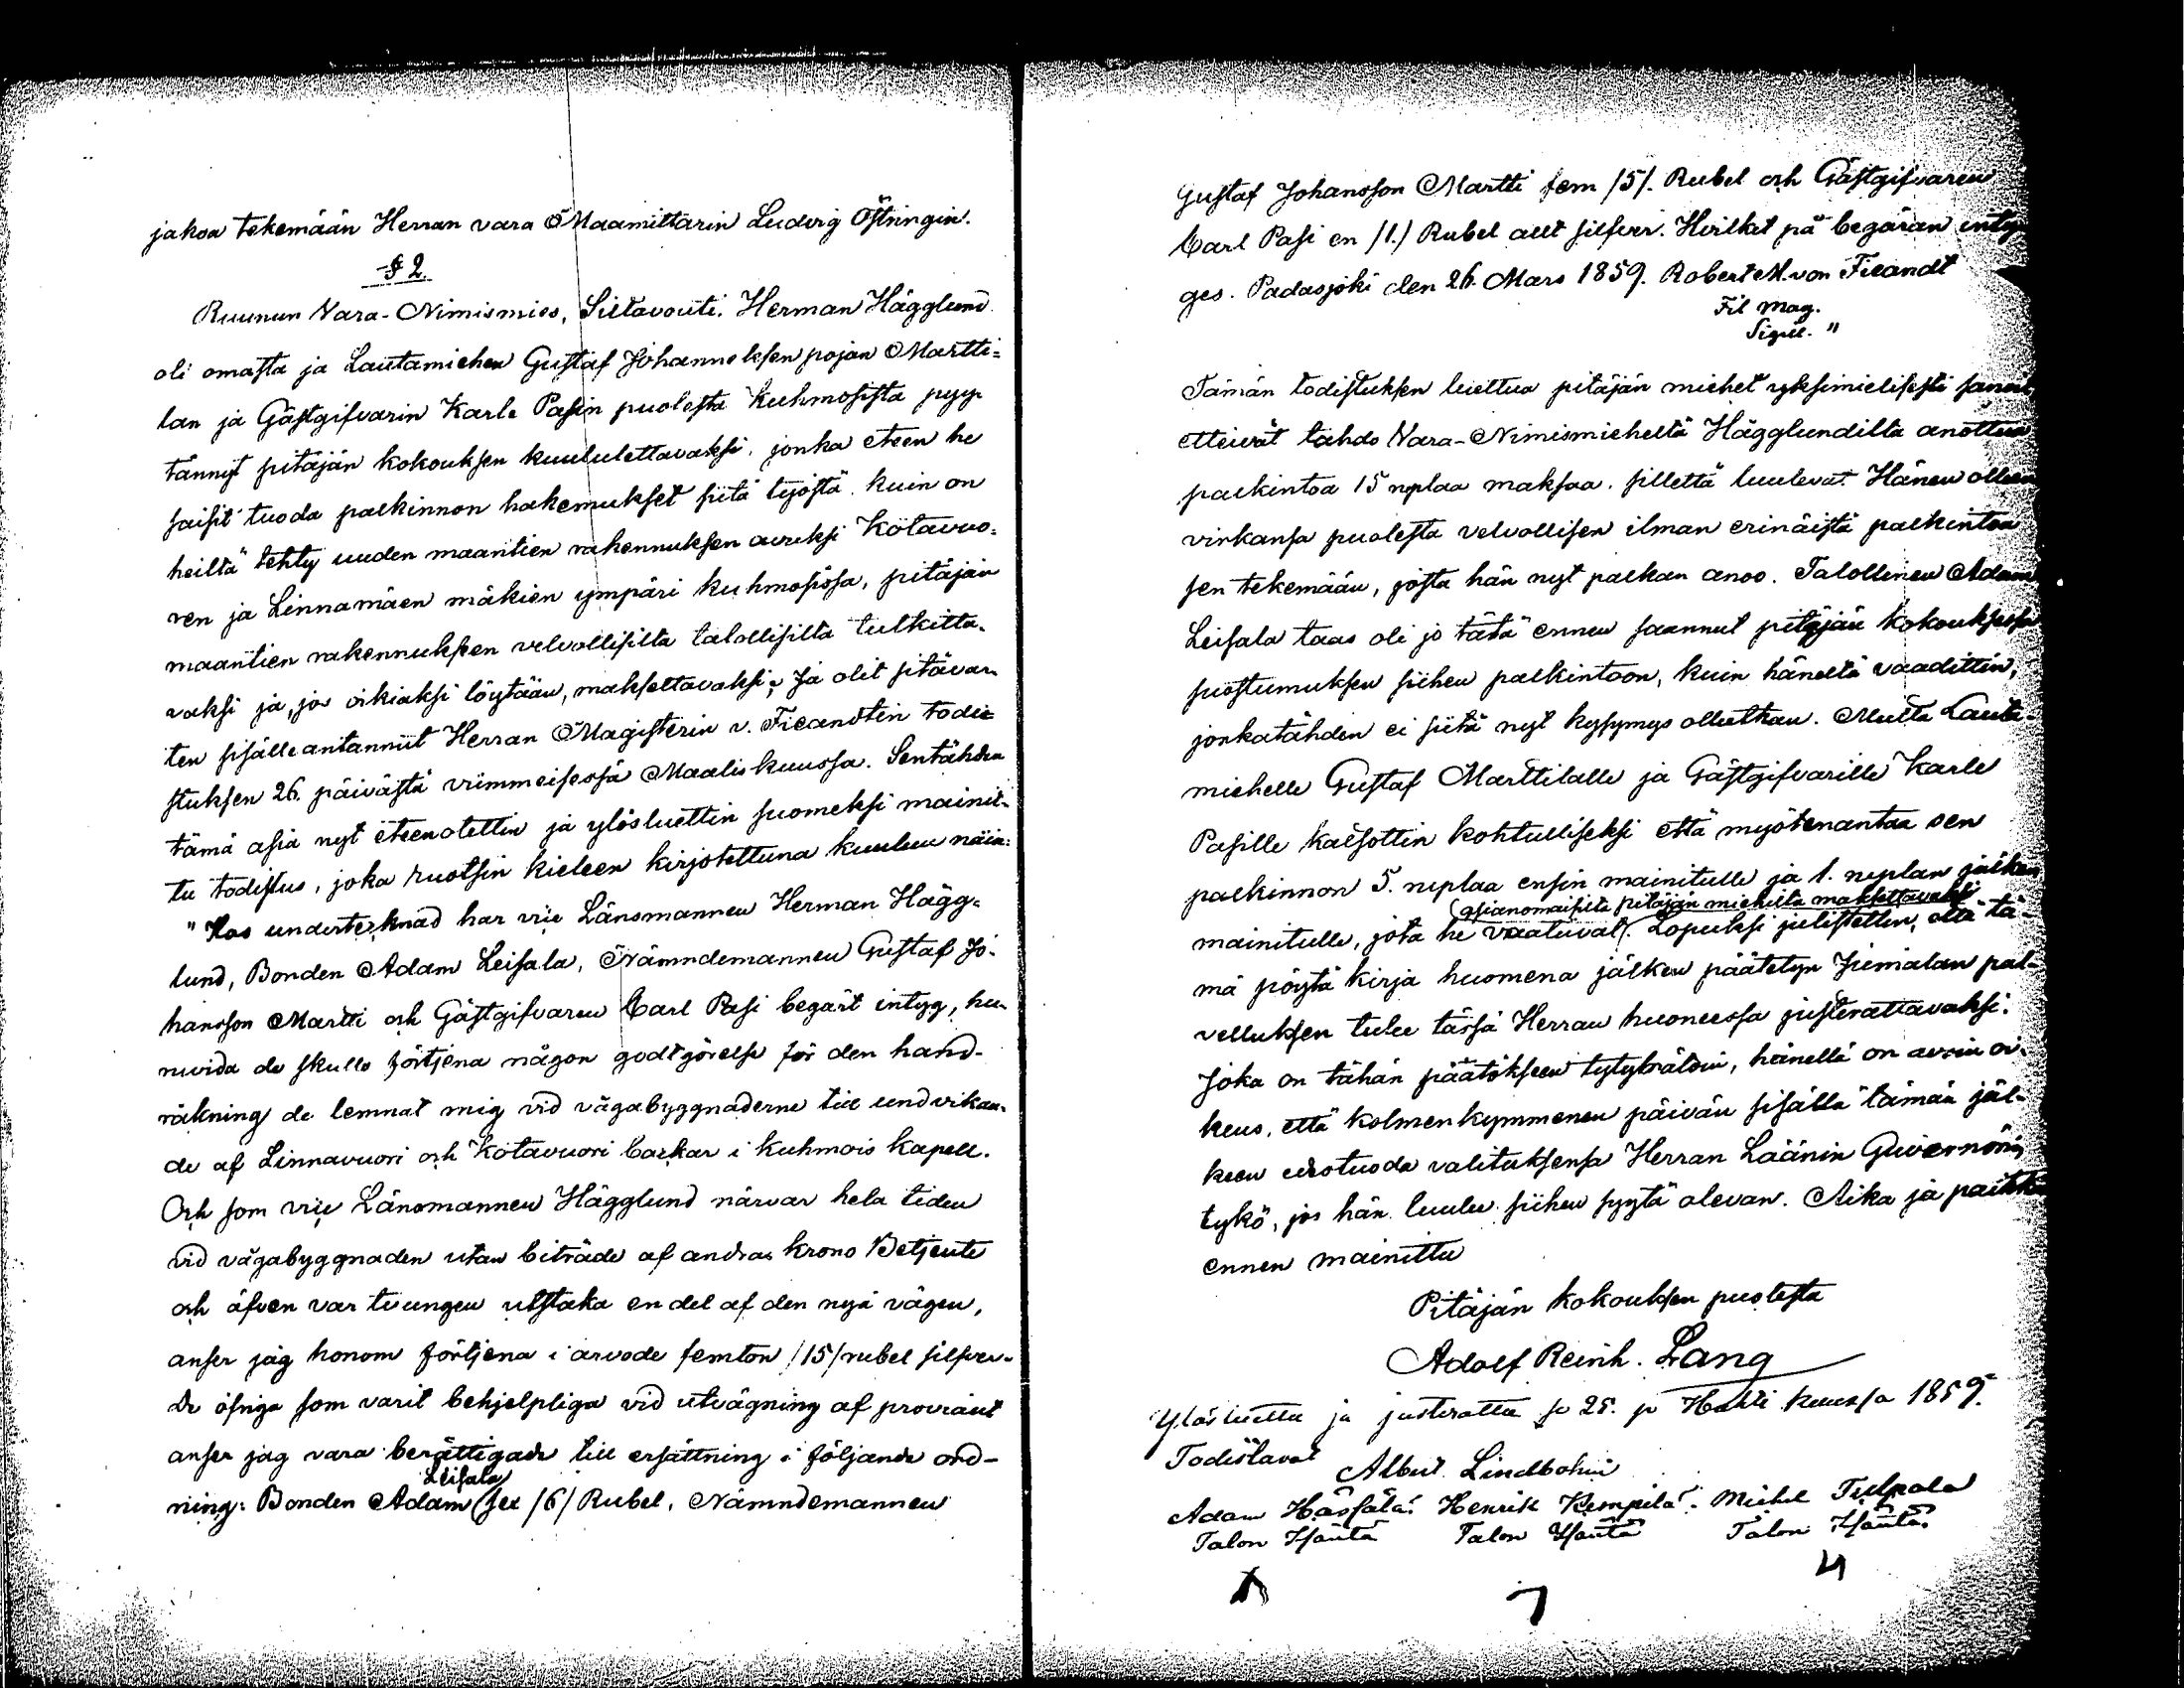 jakoa tekemään Herran vara Maamittarin Ludvig Östringin.
§ 2.
Ruunun Vara-Nimismies, Siltavouti. Herman Hägglund
oli omasta ja Lautamiehen Gustaf Johanneksen pojan Martti=
lan ja Gästgifvarin Karle Pasin puolesta Kuhmosista pyy
tännyt pitäjän kokouksen kuulutettavaksi, jonka eteen he
saisit tuoda palkinnon hakemukset siitä työstä kuin on
heiltä tehty uuden maantien rakennuksen avuksi Kotavuo-
ren ja Linnamäen mäkien ympäri kuhmosissa, pitäjän
maantien rakennuksen velvollisilta talollisilta tutkitta-
vaksi ja, jos oikiaksi löytään, maksettavaksi; Ja olit sitävar-
ten sisälle antannut Herran Magisterin v. Fieandtin todi-
stuksen 26. päivästä viimmeisessä Maaliskuussa. Sentähden
tämä asia nyt eteenotettin ja ylösluettin suomeksi mainit-
tu todistus, joka ruotsin kieleen kirjotettuna kuuluu näin:
"Hos undertecknad har vice Länsmannen Herman Hägg-
lund, Bonden Adam Leisala, Nämndemannen Gustaf Jo-
hansson Martti och Gästgifvaren Carl Pasi begärt intyg, hu-
ruvida de skulle förtjena någon godtgörelse för den hand-
räkning de lemnat mig vid vägabyggnaderne till undvikan-
de af Linnavuori och Kotavuori backar i Kuhmois Kapell.
Och som vice Länsmannen Hägglund närvar hela tiden
vid vägabyggnaden utan biträde af andra krono Betjente
och äfven var tvungen utstaka en del af den nya vägen,
anser jag honom förtjena i arvode femton /15/ rubel silfver.
De öfriga som varit behjelpliga vid utvägning af proviant
anser jag vara berättigade till ersättning i följande ord-
Leisala
ning: Bonden Adam (sex /6/ Rubel, Nämndemannen
Gustaf Johansson Martti fem /5/. Rubel och Gästgifvaren
Carl Pasi en /1./ Rubel allt silfver. Hvilket på begäran inty
ges. Padasjoki den 26. Mars 1859. Robert M. von Fieandt
Fil Mag.
Sigill. "
Tämän todistuksen luettua pitäjän miehet yksimielisesti sanoi
etteivät tahdo Vara-Nimismieheltä Hägglundilta anottua
palkintoa 15 ruplaa maksaa, sillettä luulevat Hänen olleen
virkansa puolesta velvollisen ilman erinäistä palkintoa
sen tekemään, josta hän nyt palkan anoo. Talollinen Adam
Leisala taas oli jo tätä ennen saannut pitäjän kokouksessa
suostumuksen siihen palkintoon, kuin häneltä vaadittin,
jonkatähden ei siitä nyt kysymys ollutkan. Mutta Lauta-
miehelle Gustaf Marttilalle ja Gästgifvarille Karle
Pasille katsottin kohtulliseksi että myötenantaa sen
palkinnon 5. ruplaa ensin mainitulle ja 1. ruplan jälken
(asianomaisilta pitäjän miehiltä maksettavaksi
mainitulle, jota he vaatuvat/. Lopuksi julistettin, että tä-
mä pöytä kirja huomena jälken päätetyn Jumalan pal-
velluksen tulee tässä Herran huoneessa justerattavaksi.
Joka on tähän päätökseen tytybrätöin, hänellä on avoin oi-
keus, että kolmenkymmenen päivän sisällä tämän jäl-
keen ulostuoda valituksensa Herran Läänin Guvernörin
tykö, jos hän luulee siihen syytä olevan. Aika ja paikka
ennen mainittu
Pitäjän kokouksen puolesta
Adolf Reinh. Lang
Ylösluettu ja justerattu se 25. p Huhti kuussa 1859.
Todistavat
Albert Lindbohm
Adam Hassala. Henrik Kempila. Michel Tulpala
Talon Isäntä Talon Isäntä Talon Isäntä